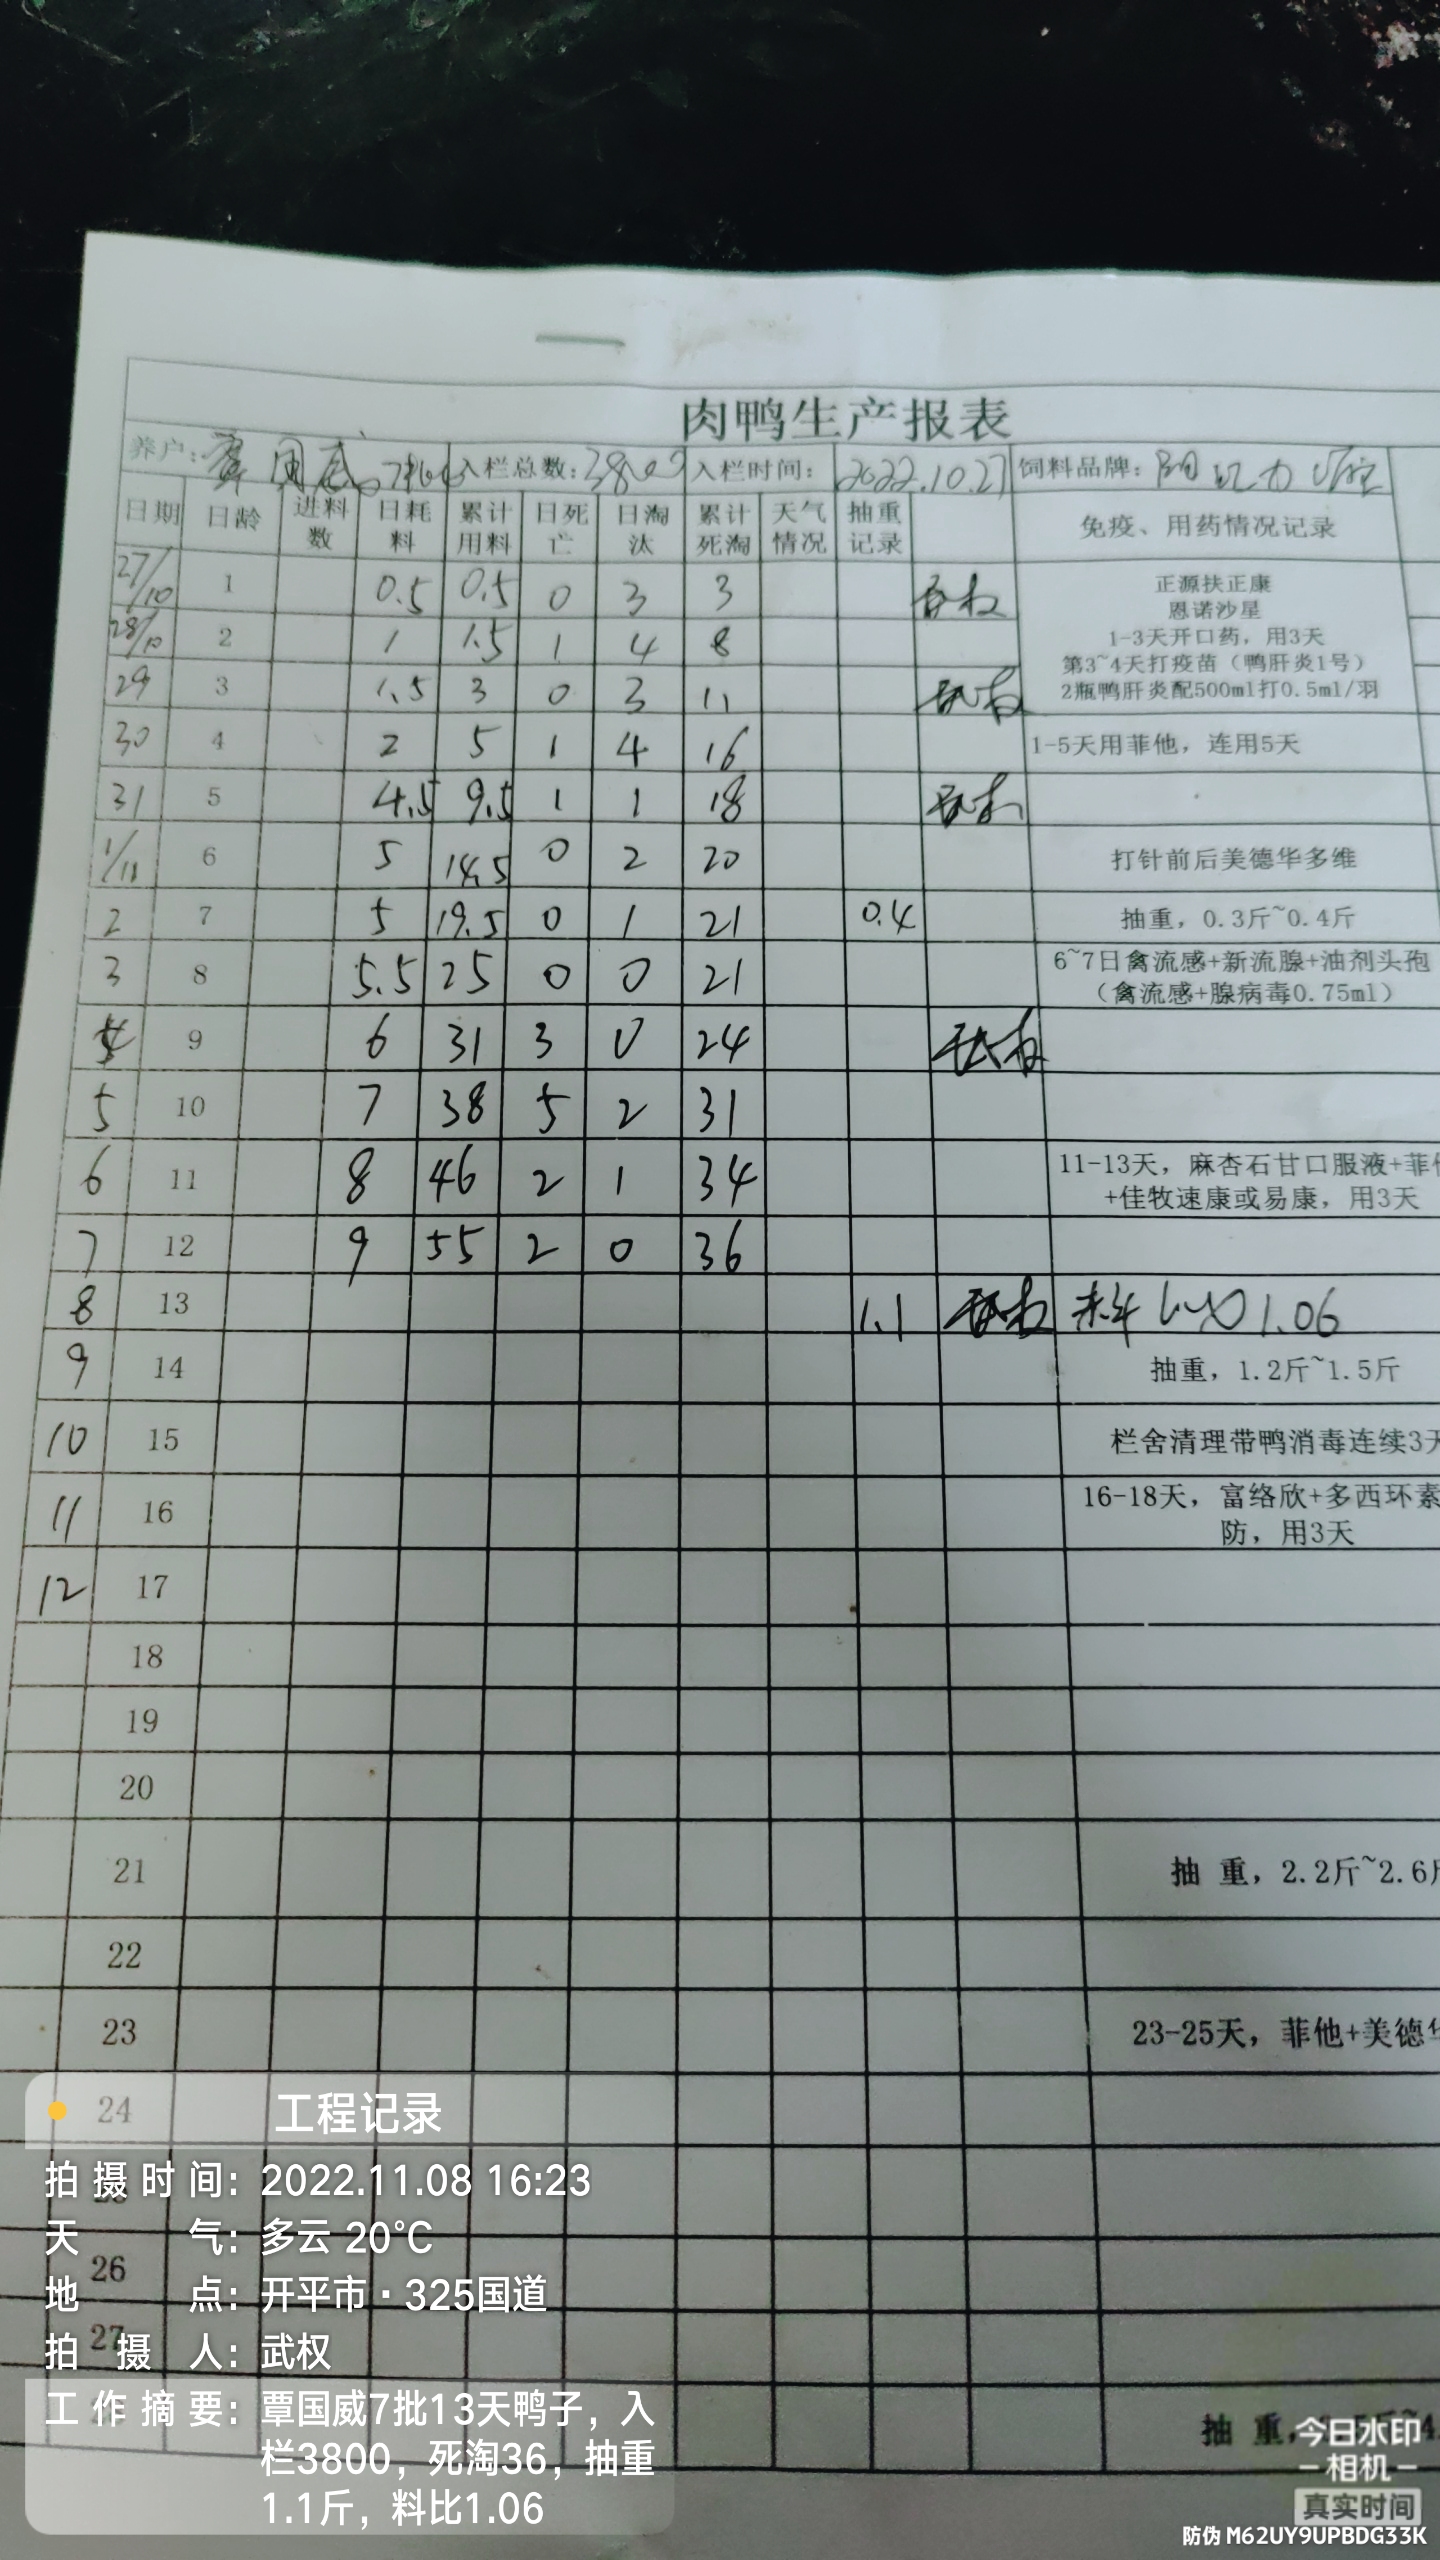 肉鸭生产报表
养户：覃国威 7批 入栏总数：3800 入栏时间： 2022.10.27 饲料品牌：
日期 日龄 进料数 日耗料 累计用料 日死亡 日淘汰 累计死淘 天气情况 抽重记录 免疫、用药情况记录
27/10 1 0.5 0.5 0 3 3 武权 正源扶正康
恩诺沙星
28/10 2 1 1.5 1 4 8 1-3天开口药，用3天
第3~4天打疫苗（鸭肝炎1号）
29 3 1.5 3 0 3 11 武权 2瓶鸭肝炎配500ml打0.5ml/羽
30 4 2 5 1 4 16 1-5天用菲他，连用5天
31 5 4.5 9.5 1 1 18 武权
1/11 6 5 14.5 0 2 20 打针前后美德华多维
2 7 5 19.5 0 1 21 0.4 抽重，0.3斤~0.4斤
3 8 5.5 25 0 0 21 6~7日禽流感+新流腺+油剂头孢
（禽流感+腺病毒0.75ml）
4 9 6 31 3 0 24 武权
5 10 7 38 5 2 31
6 11 8 46 2 1 34 11-13天，麻杏石甘口服液+菲他
+佳牧速康或易康，用3天
7 12 9 55 2 0 36
8 13 1.1 武权 料比 1.06
9 14 抽重，1.2斤~1.5斤
10 15 栏舍清理带鸭消毒连续3天
11 16 16-18天，富络欣+多西环素
防，用3天
12 17
18
19
20
21 抽 重，2.2斤~2.6斤
22
23 23-25天，菲他+美德华
24
26
27
抽 重，
工程记录
拍摄时间：2022.11.08 16:23
天 气：多云 20℃
地 点：开平市·325国道
拍 摄 人：武权
工作摘要：覃国威7批13天鸭子，入
栏3800，死淘36，抽重
1.1斤，料比1.06
今日水印
相机
真实时间
防伪 M62UY9UPBDG33K